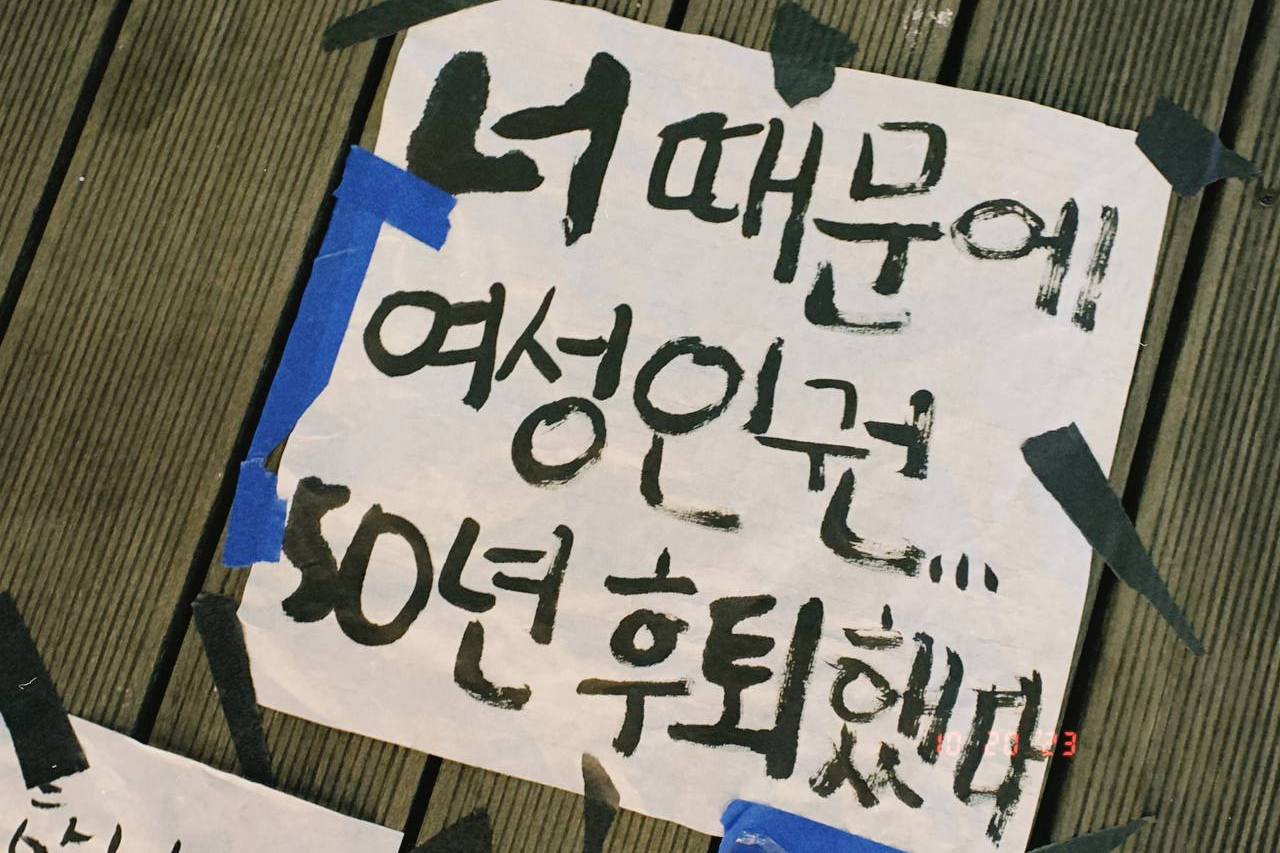 너 때문에
여성인권...
50년 후퇴했다
10 20 '23